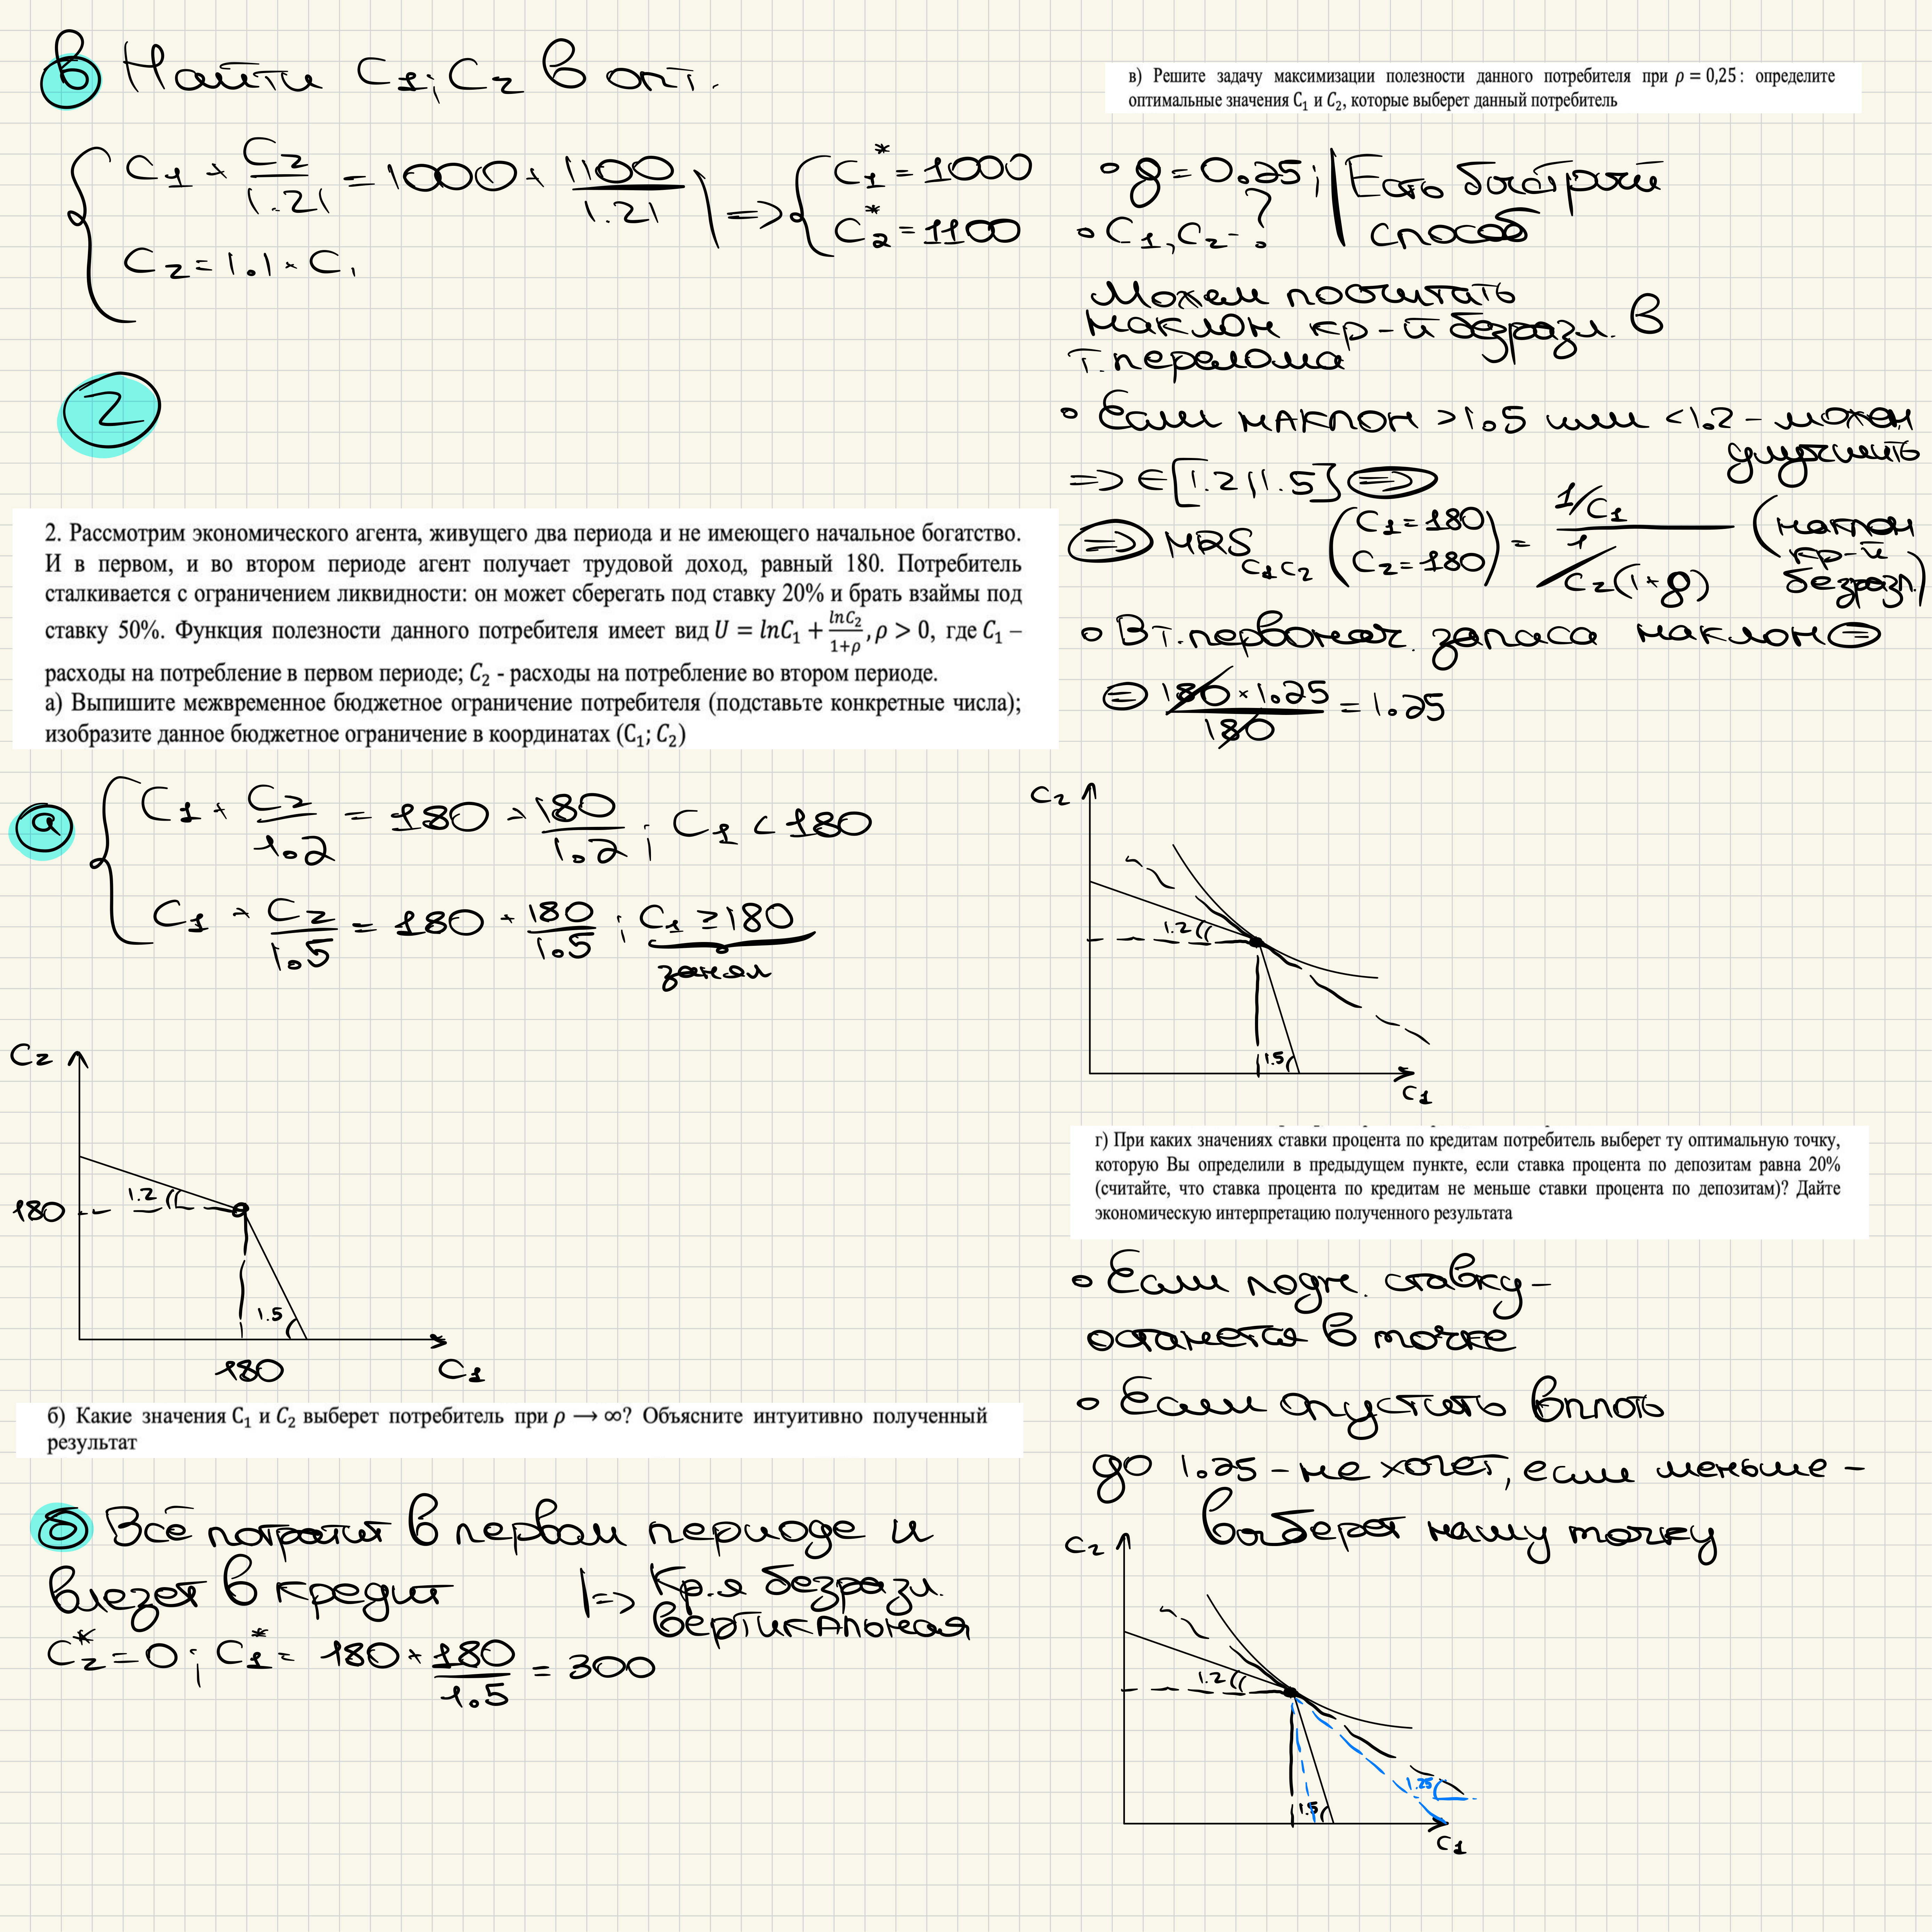 в Найти C1; C2 в опт.
C1 + C2/1.21 = 1000 + 1100/1.21 | => C1* = 1000
C2 = 1.1 · C1
C2* = 1100
2
2. Рассмотрим экономического агента, живущего два периода и не имеющего начальное богатство.
И в первом, и во втором периоде агент получает трудовой доход, равный 180. Потребитель
сталкивается с ограничением ликвидности: он может сберегать под ставку 20% и брать взаймы под
ставку 50%. Функция полезности данного потребителя имеет вид U = lnC₁ + lnC₂/1+ρ, ρ > 0, где C₁ –
расходы на потребление в первом периоде; C₂ - расходы на потребление во втором периоде.
а) Выпишите межвременное бюджетное ограничение потребителя (подставьте конкретные числа);
изобразите данное бюджетное ограничение в координатах (C₁; C₂)
а C1 + C2/1.2 = 180 + 180/1.2 ; C1 < 180
C1 + C2/1.5 = 180 + 180/1.5 ; C1 ≥ 180
занял
C2
180
1.2
1.5
180
C1
б) Какие значения C₁ и C₂ выберет потребитель при ρ → ∞? Объясните интуитивно полученный
результат
б Всё потратит в первом периоде и
влезет в кредит |=> Кр.я безразл.
вертикальная
C2* = 0 ; C1* = 180 + 180/1.5 = 300
в) Решите задачу максимизации полезности данного потребителя при ρ = 0,25: определите
оптимальные значения C₁ и C₂, которые выберет данный потребитель
• g = 0.25; | Есть быстрый
• C1, C2 - ? | способ
Можем посчитать
наклон кр-й безразл. в
т. перелома
• Если наклон >1.5 или <1.2 - можем
улучшить
=> ∈ [1.2 | 1.5] =>
=> MRS C1C2 (C1=180 C2=180) = 1/C1 / 1/C2(1+g) (наклон кр-й безразл.)
• В т. первонач. запаса наклон =
= 180 · 1.25 / 180 = 1.25
C2
1.2
1.5
C1
г) При каких значениях ставки процента по кредитам потребитель выберет ту оптимальную точку,
которую Вы определили в предыдущем пункте, если ставка процента по депозитам равна 20%
(считайте, что ставка процента по кредитам не меньше ставки процента по депозитам)? Дайте
экономическую интерпретацию полученного результата
• Если подн. ставку -
останется в точке
• Если опустить вплоть
до 1.25 - не хочет, если меньше -
выберет нашу точку
C2
1.2
1.25
1.5
C1